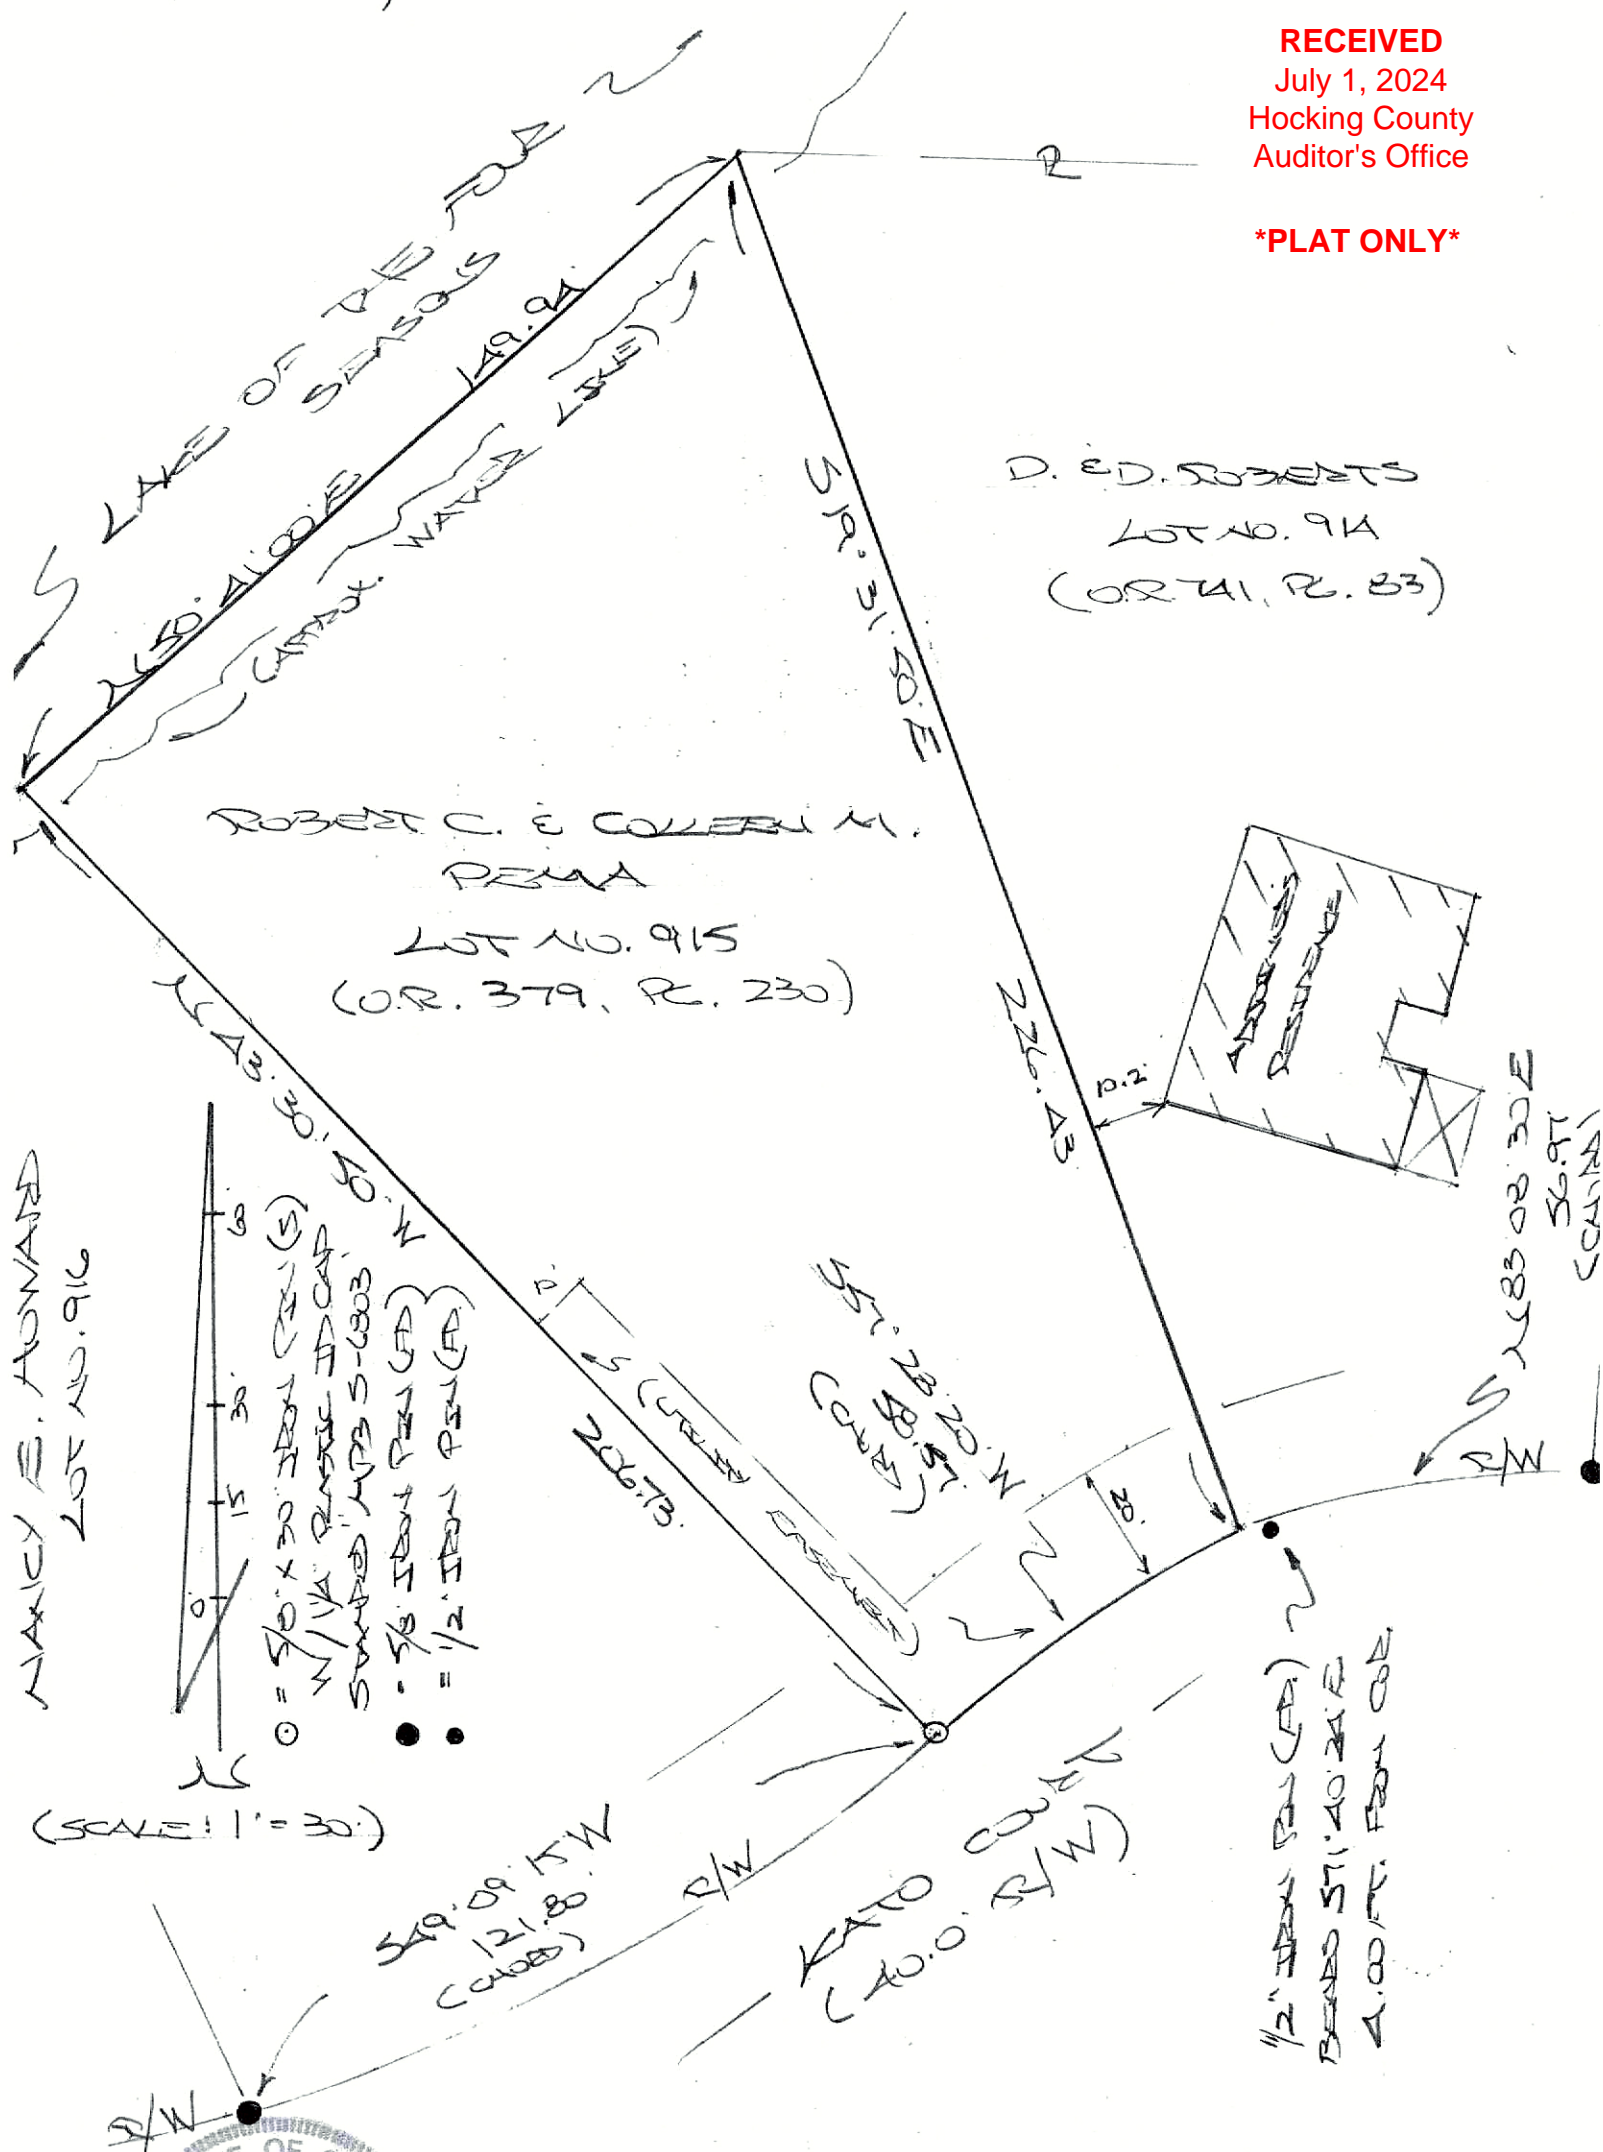 RECEIVED
July 1, 2024
Hocking County
Auditor's Office
*PLAT ONLY*
LAKE OF
SEASONS
149.94'
(APPROX. WATER LINE)
D. & D. ROBERTS
LOT NO. 914
(O.R. 741, PG. 83)
226.43'
ROBERT C. & COLLEEN M.
PEMA
LOT NO. 915
(O.R. 379, PG. 230)
RESIDENCE
10.2'
N 43° 30' 50" W
206.73'
10'
(UTILITY EASEMENT)
(CHORD)
8'
N 83° 08' 32" E
56.97
(CHORD)
R/W
NANCY E. HOWARD
LOT NO. 916
60'
30'
15
0'
= 5/8" X 30" IRON PIN (S)
W/ 1 1/4" PLASTIC ID CAP
STAMPED "MPB S-6803"
= 5/8" IRON PIN (FD)
= 1/2" IRON PIN (FD)
N
(SCALE: 1" = 30')
S 49° 09' 15" W
121.80'
(CHORD)
R/W
KATO COURT
(40.0' R/W)
1/2" IRON PIN (FD)
BEARS S 71° 40' 24" E
4.00 FT. FROM COR.
R/W
OF